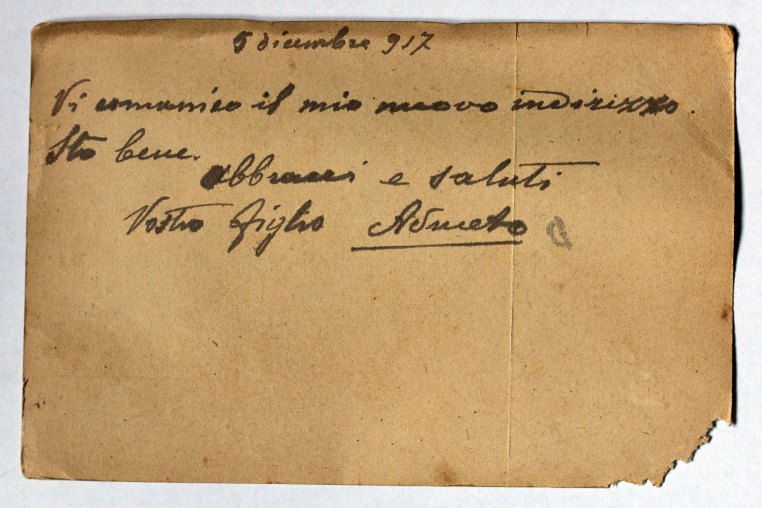 5 dicembre 917
Vi comunico il mio nuovo indirizzo.
Sto bene.
abbracci e saluti
Vostro figlio Admeto